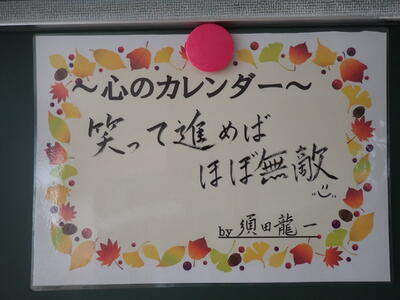 ～心のカレンダー～
笑って進めば
ほぼ無敵
by 須田龍一